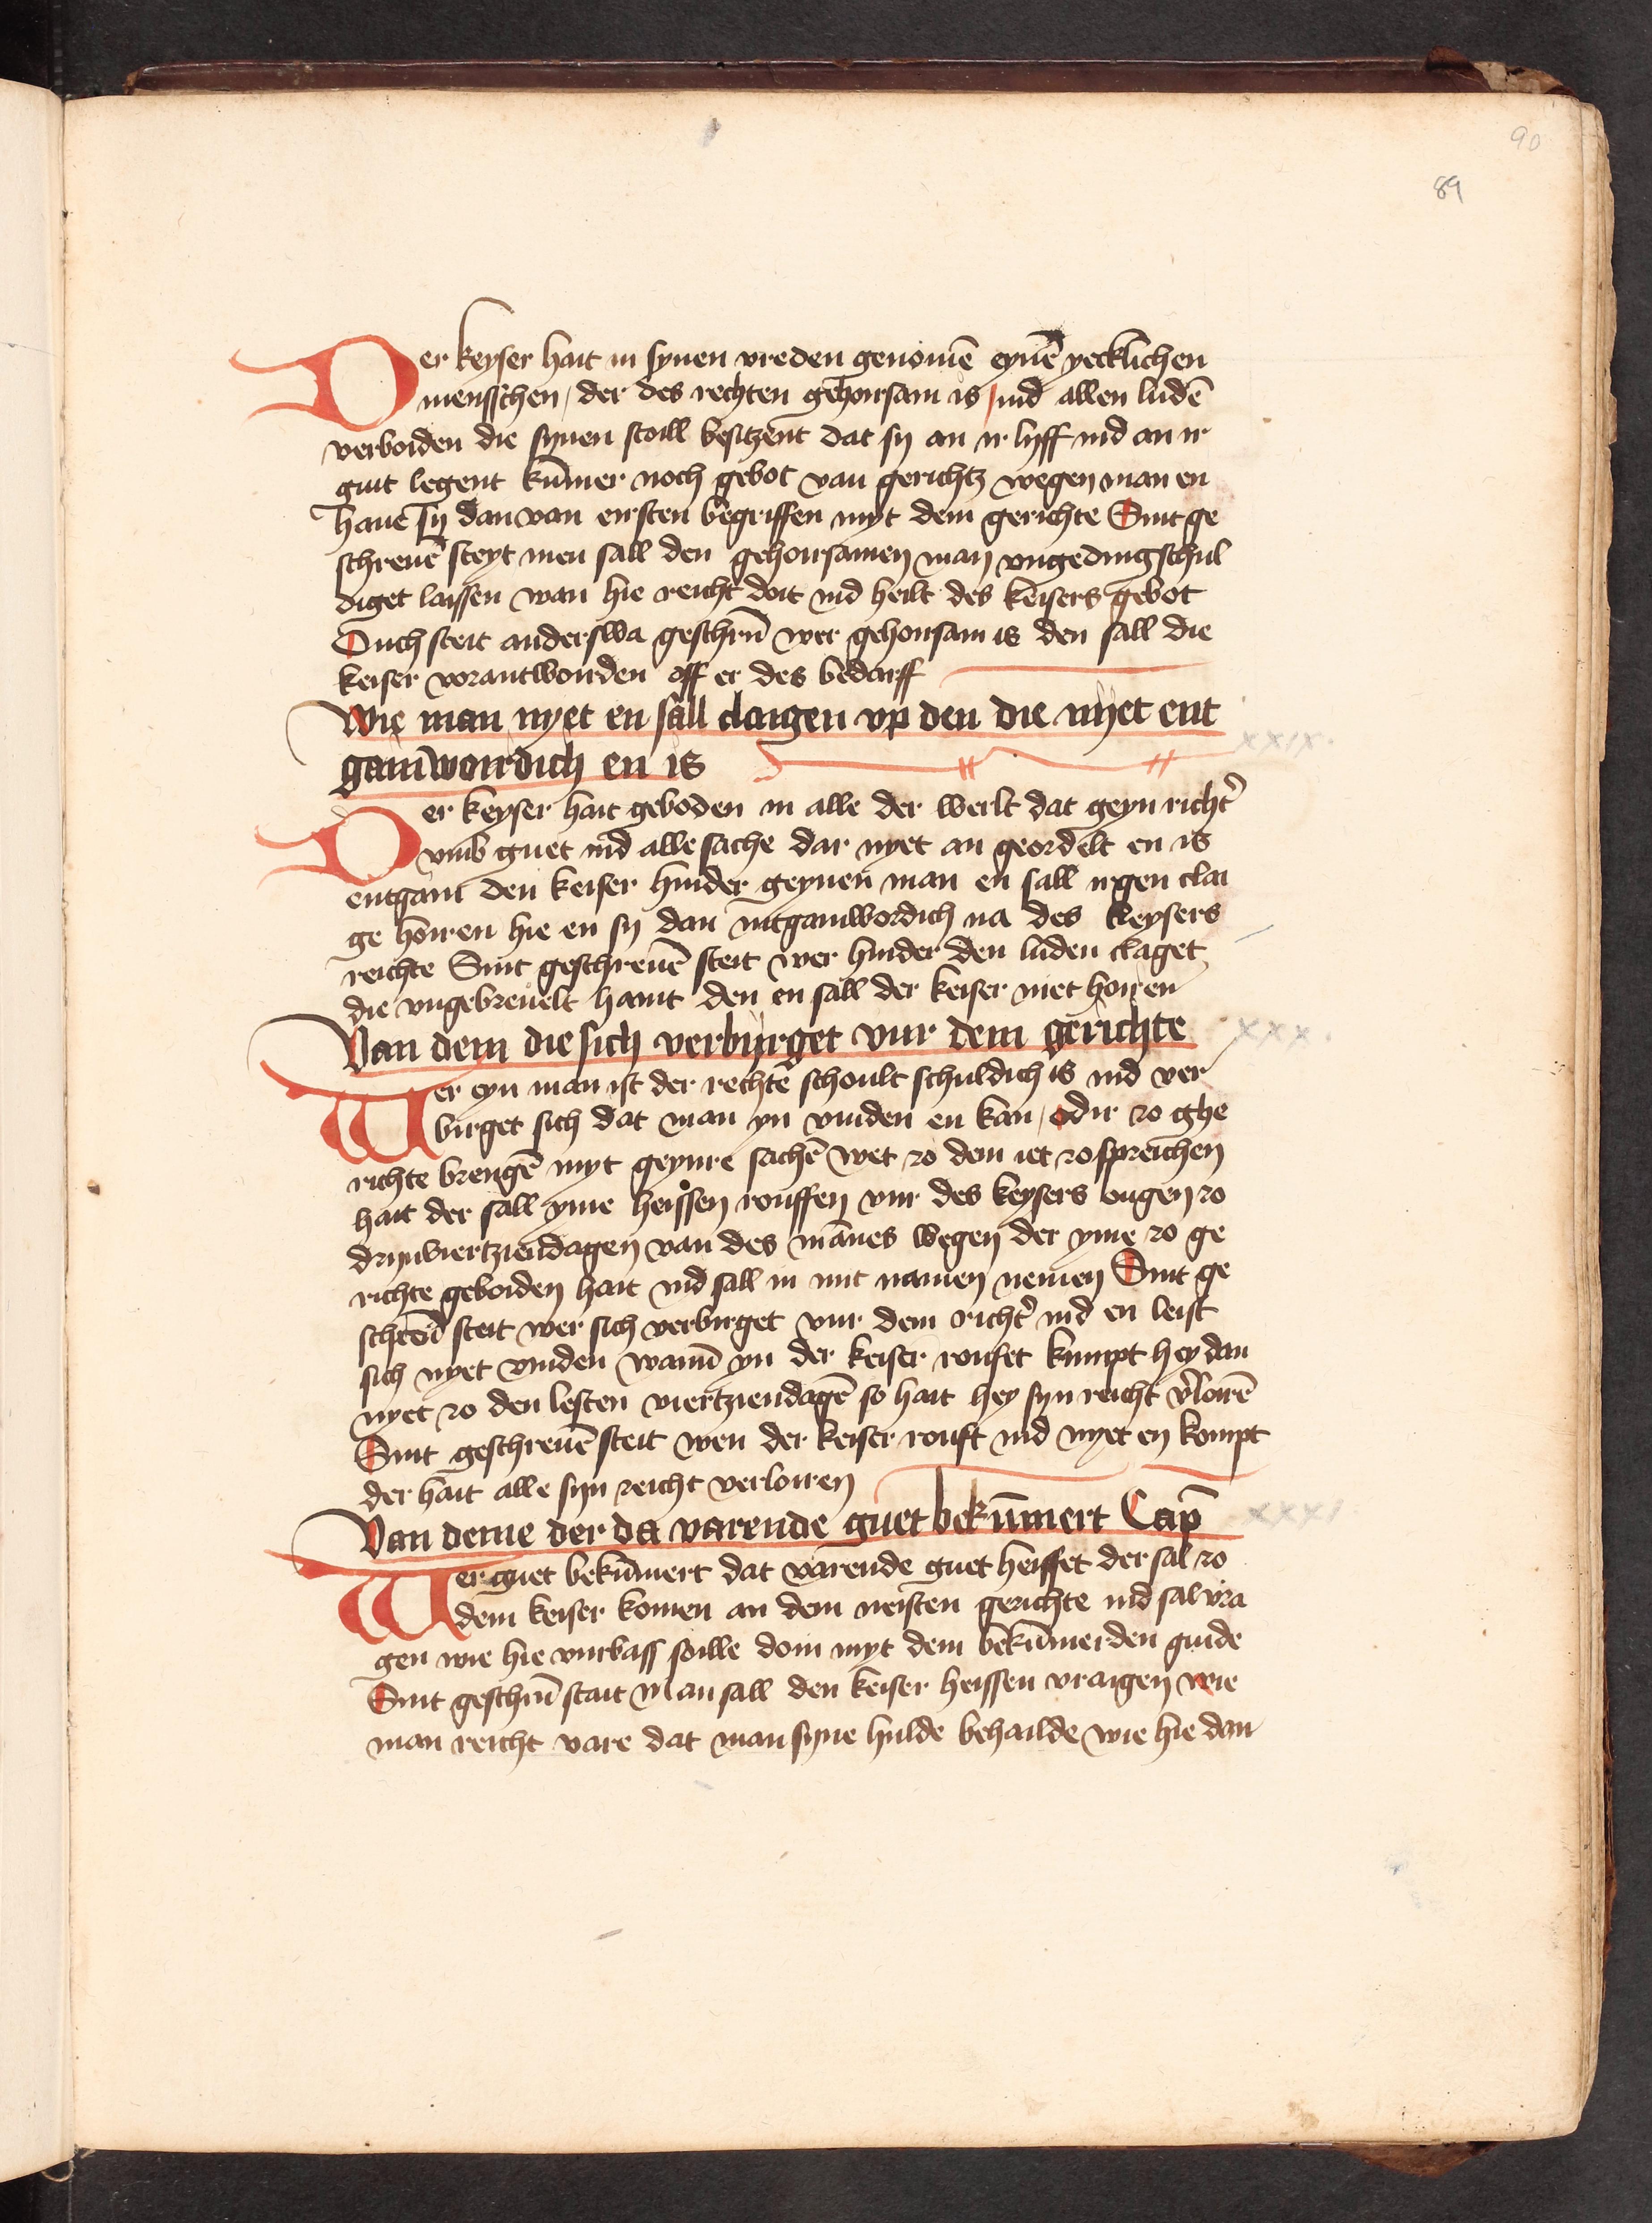 90
89
Der keyser hait in synen vreden genomē eynē yecklichen
menschen, der des rechten gehoirsam is / ind allen ludē
verboiden die synen stoill besitzent dat sy an ir lyff ind an ir
guit legent kūmer noch gebot van gerichtz wegen man en
haue sy dan van eirsten begriffen myt dem gerichte Sint ge
schreuē steyt men sall den gehoirsamen man vngedingschul
diget laissen wan hie reicht doit ind heilt des keisers gebot
Ouch steit anderswa geschrū wer gehoirsam is den sall die
keiser vorantworden off er des bedarff
Wie man nyet en sall claigen vp den die nyet ent
gainwordich en is
xxix.
Der keyser hait geboden in alle der werlt dat geyn richt'
vmb guet ind alle sache dar nyet an geordelt en is
entgain den keiser hinder geynen man en sall irgen clai
ge hoiren hie en sy dan intgainwordich na des keysers
reichte Sint geschreuē steit wer hinder den luden claget
die vngebreuelt haint den en sall der keiser niet hoiren
Van dem die sich verbirget vur dem gerichte
xxx.
Wer eyn man ist der rechtē schoult schuldich is ind ver
birget sich dat man yn vinden en kan, odir zo ghe
richte brengē myt geynre sachē wet zo dem iet zo spreichen
hait der sall yme heissen rouffen vur des keysers ougen zo
drijnviertziendagen van des mānes wegen der yme zo ge
richte geboiden hait ind sall in mit namen nemen Sint ge
schreū steit wer sich verbirget vur dem richt' ind en leist
sich nyet vinden wann yn der keiser roufet kumpt hey dan
nyet zo den lesten viertziendagē so hait hey syn reicht v'loirē
Sint geschreuē steit wen der keiser rouft ind nyet en kompt
der hait alle syn reicht verloiren
Van deme der da varende guet bekūmert Cap̄
xxxi
Wer guet bekūmert dat varende guet heisset der sal zo
dem keiser komen an dem neisten gerichte ind sal vra
gen wie hie vurbass soille doin myt dem bekūmerden guide
Sint geschrū stait Man sall den keiser heissen vraigen wie
man reicht vare dat man syne hulde behailde wie hie dan